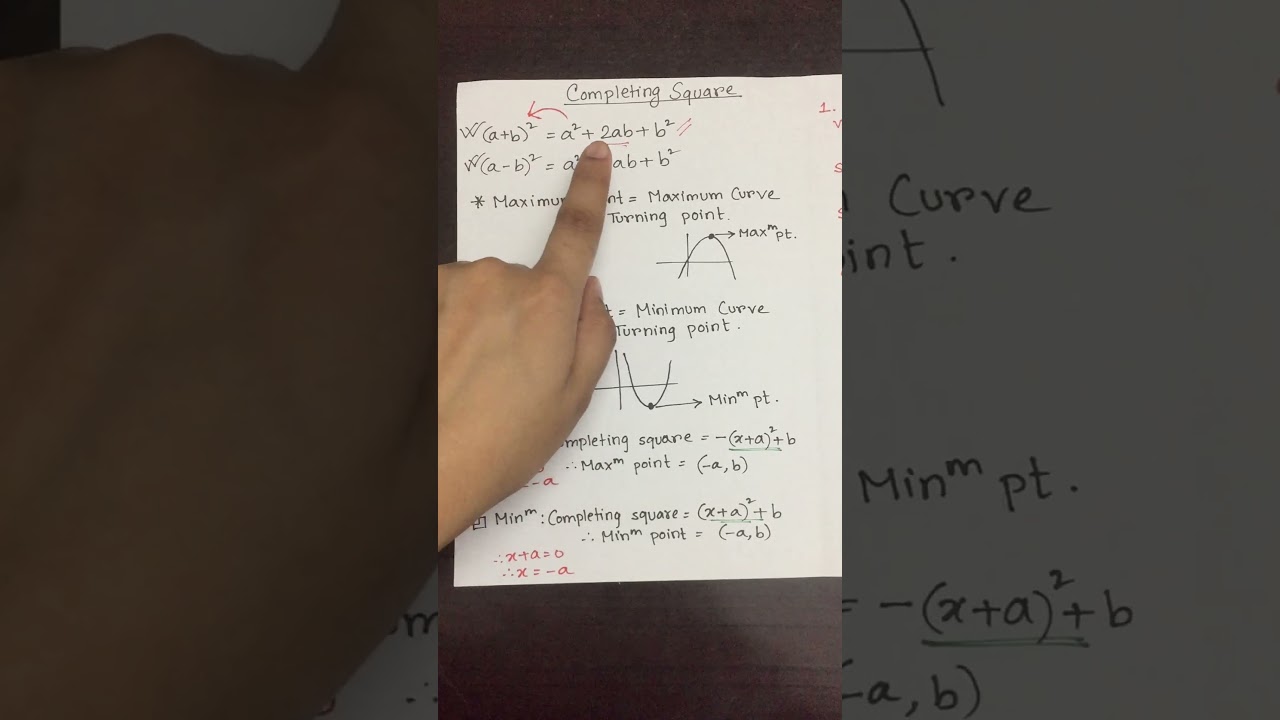 Completing Square
(a+b)² = a² + 2ab + b²
(a-b)² = a² ab + b²
* Maximum = Maximum Curve
Turning point.
Maxᵐ pt.
= Minimum Curve
Turning point.
Minᵐ pt.
completing square = -(x+a)² + b
∴ Maxᵐ point = (-a, b)
-a
Minᵐ: Completing square = (x+a)² + b
∴ Minᵐ point = (-a, b)
∴ x+a=0
∴ x = -a
1.
Curve
Minᵐ pt.
= -(x+a)² + b
-a, b)